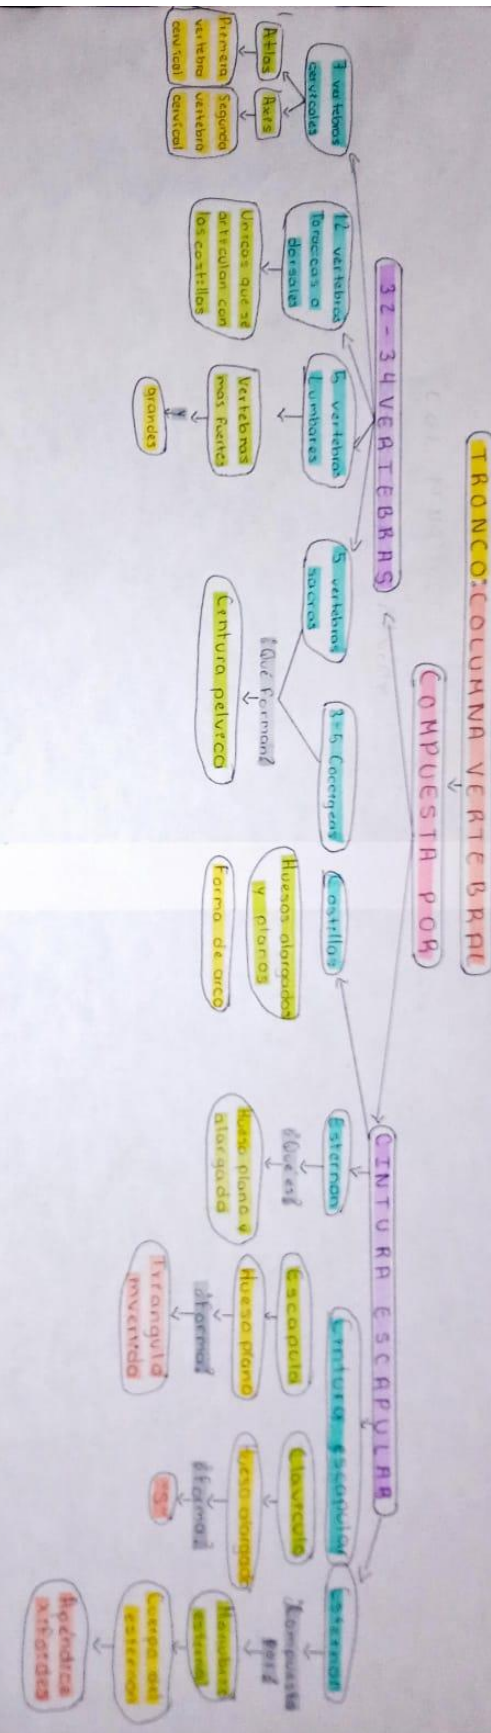 TRONCO: COLUMNA VERTEBRAL
COMPUESTA POR
32 - 34 VERTEBRAS
7 vertebras
cervicales
Atlas
Primera
vertebra
cervical
Axis
Segunda
vertebra
cervical
12 vertebras
Toraccas o
dorsales
Unicas que se
articulan con
las costillas
5 vertebras
Lumbares
Vertebras
mas fuertes
y
grandes
5 vertebras
sacras
3-5 Coccigeas
¿Qué forman?
Cintura pelvica
CINTURA ESCAPULAR
Costillas
Huesos alargados
y planos
Forma de arco
Esternon
¿Qué es?
Hueso plano y
alargado
Cintura escapular
Escapula
Hueso plano
¿Forma?
Triangulo
invertido
Clavicula
Hueso alargado
¿Forma?
"S"
Esternon
¿Compuesto
por?
Manubrio
esternal
Cuerpo del
esternon
Apéndice
xifoides